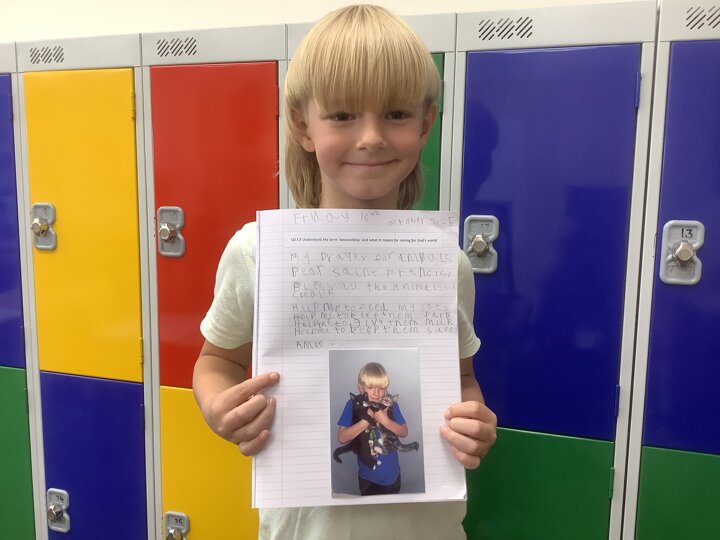 Friday 10th october 2025
U2 I 3 Understand the term 'stewardship' and what it means for caring for God's world.
My prayer for Animals
Dear Saint Francis,
Bless all the animals
Creation
Help me to feed my cats
Help me to keep them
Help me to give them milk
Help me to keep them safe
Amen
13